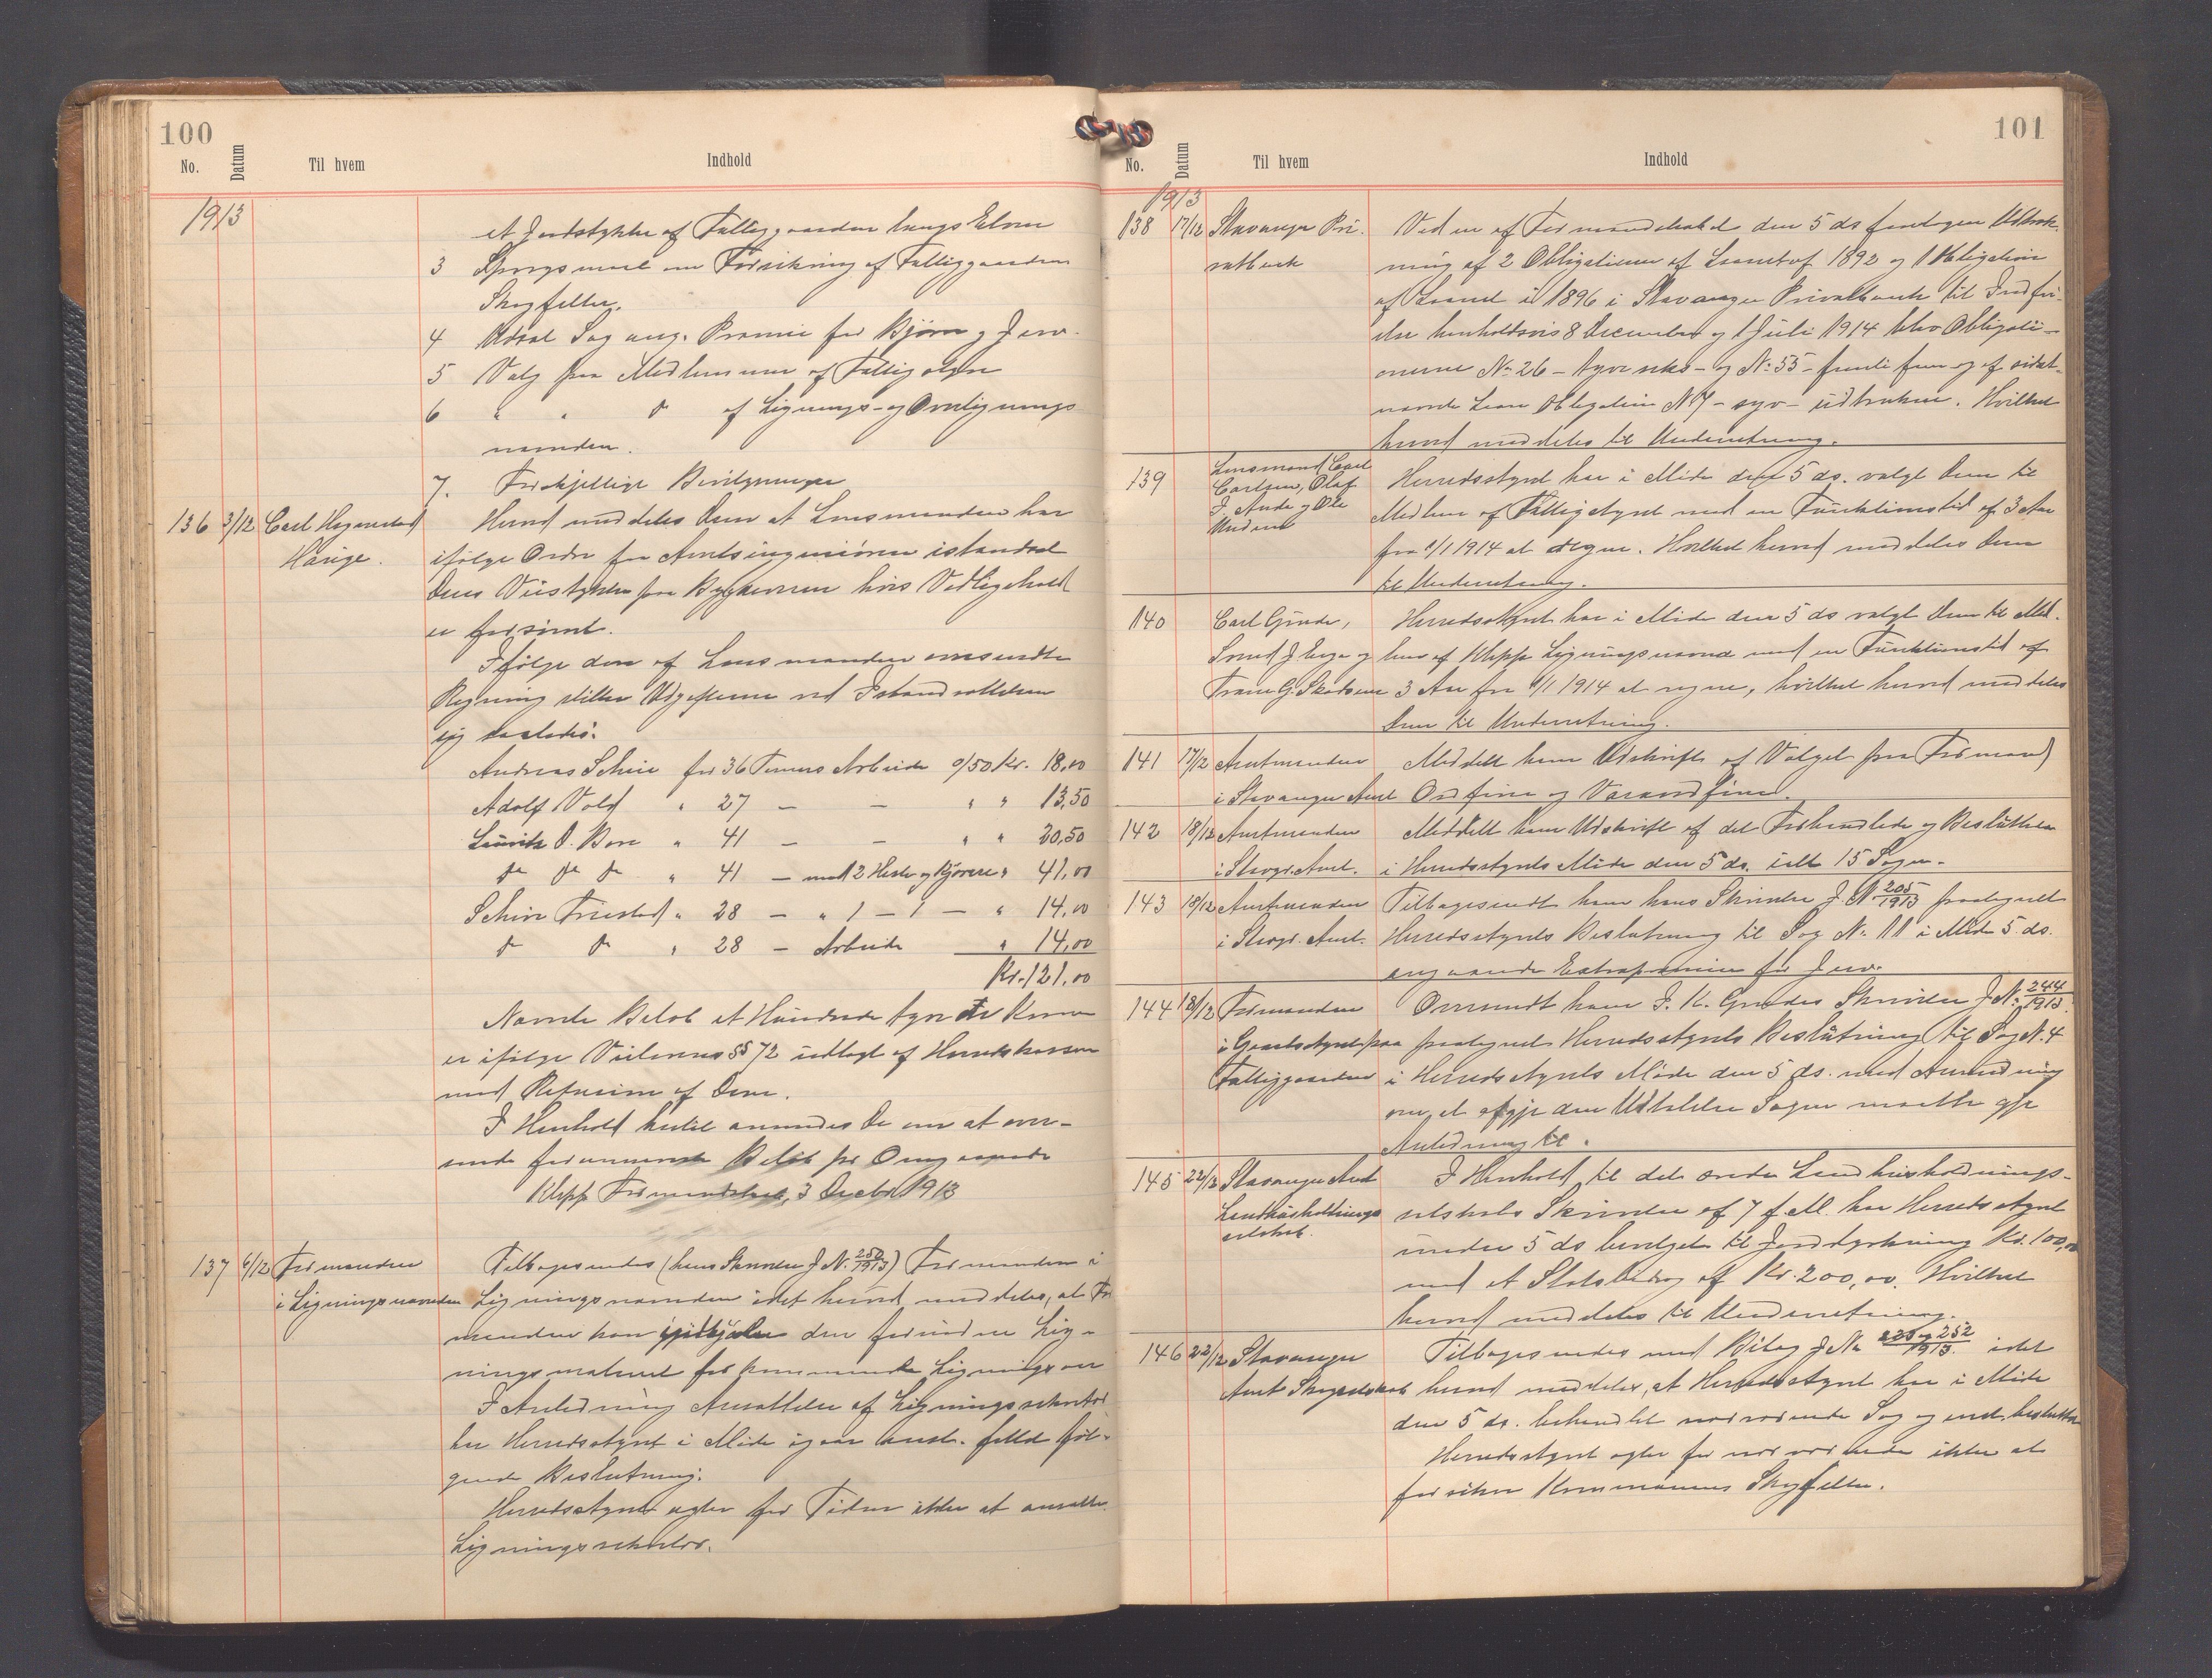 100
No. Datum Til hvem Indhold
1913
et Jordstykke af Fattiggaarden langs Elven
3 Spørgsmaal om Forsikring af Fattiggaardens
Skogfelter.
4 Udsat Sag ang. Præmie for Bjørn og Jerv.
5 Valg paa Medlemmer af Fattigstyre
6 " " do af Lignings- og Overlignings
nævnden.
7. Forskjellige Bevilgninger
136 3/12 Carl Hognestad Herved meddeles Dem at Lensmanden har
Hauge. ifølge Ordre fra Amtsingeniøren istandsat
Deres Veistykke paa Bygdeveien hvis Vedligehold
er forsømt.
Ifølge den af Lensmanden omsendte
Regning stiller Udgifterne ved Istandsættelsen
sig saaledes.
Andreas Schie for 36 Timers Arbeide 0/50 Kr. 18,00
Adolf Vold " 27 — — " " 13,50
Lauritz O. Bore " 41 — — " " 20,50
do do do " 41 — med 2 Heste og Kjørere " 41,00
Schive Friestad " 28 — " 1 — 1 — " 14,00
do do " 28 — Arbeide " 14,00
Kr. 121,00
Nævnte Beløb et Hundrede tyve et Kroner
er ifølge Veilovens §§ 72 udlagt af Herredskassen
med Refusion af Dem.
I Henhold hertil anmodes De om at over-
sende forannævnte Beløb pr Omgaaende
Klepp Formandskab, 3 Decbr 1913
137 6/12 Formanden Tilbagesendes (hans Skrivelse J. N. 250/1913) Formanden i
i Ligningsnævnden Ligningsnævnden idet herved meddeles, at For
manden kan den forinden Lig-
ningsmateriel for kommende Ligningsaar
I Anledning Ansættelse af Ligningssekretær
har Herredsstyret i Møde igaar fattet føl-
gende Beslutning:
Herredsstyret agter for Tiden ikke at ansætte
Ligningssekretær.
101
No. Datum Til hvem Indhold
1913
138 17/12 Stavanger Pri- Ved en af Formandskabet den 5 ds foretagen Udtræk-
vatbank ning af 2 Obligationer af Laanet af 1892 og 1 Obligation
af Laanet i 1896 i Stavanger Privatbank til Indfri-
else henholdsvis 8 December og 1 Juli 1914 blev Obligati-
onerne No 26 – tyve seks – og No 55 – femti fem og af sidst-
nævnte Laan Obligation N 7 – syv – udtrukken. Hvilket
herved meddeles til Underretning.
139 Lensmand Carl Herredsstyret har i Møde den 5 ds. valgt Dem til
Carlsen, Olaf Medlem af Fattigstyret med en Funktionstid af 3 Aar
J. Anda og Ole fra 1/1 1914 at regne. Hvilket herved meddeles Dem
Undem til Underretning.
140 Carl Grude, Herredsstyret har i Møde den 5 ds valgt Dem til Med-
Svend J Erga og lem af Klepp Ligningsnævnd med en Funktionstid af
Trane G. Skadsem 3 Aar fra 1/1 1914 at regne, hvilket herved meddeles
Dem til Underretning.
141 17/12 Amtmanden Meddelt ham Udskrift af Valget paa Formand
i Stavanger Amt Ordfører og Varaordfører.
142 18/12 Amtmanden Meddelt ham Udskrift af det Forhandlede og Besluttede
i Stavgr. Amt. i Herredsstyrets Møde den 5 ds. ialt 15 Sager.
143 18/12 Amtmanden Tilbagesendt ham hans Skrivelse J. N. 205/1913 paategnet
i Stavgr. Amt. Herredsstyrets Beslutning til Sag No 11 i Møde 5 ds.
angaaende Extrapræmie for Jerv.
144 18/12 Formanden Oversendt ham J. K. Grudes Skrivelse J No 244/1913
i Gaardsstyret paa paategnet Herredsstyrets Beslutning til Sag N. 4
Fattiggaarden i Herredsstyrets Møde den 5 ds. med Anmodning
om at afgje den Udtalelse Sagen maatte gje
Anledning til.
145 22/12 Stavanger Amt I Henhold til det ærede Landhusholdnings-
Landhusholdnings selskabs Skrivelse af 7 f. M. har Herredsstyret
selskab. under 5 ds bevilget til Jorddyrkning Kr. 100,00
med et Statsbidrag af Kr. 200,00. Hvilket
herved meddeles til Underretning.
146 22/12 Stavanger Tilbagesendes med Bilag J No 225 og 252/1913. idet
Amt Skogselskab herved meddeles, at Herredsstyret har i Møde
den 5 ds. behandlet nærværende Sag og besluttet
Herredsstyret agter for nærværende ikke at
forsikre Kommunens Skogfelter.